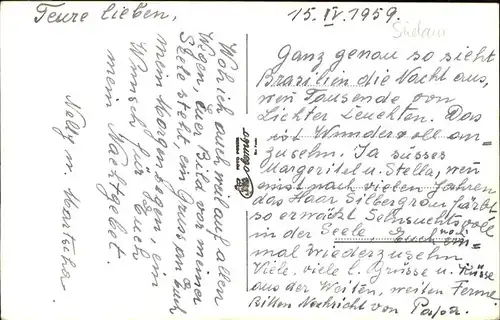 Teure Lieben,
Wohl ich auch, weil auf allen
Wegen, Euer Bild vor meiner
Seele steht, ein Gruss an Euch
mein Morgensegen, ein
Wunsch für Euch
mein Nachtgebet.
Nelly m
15. IV. 1959.
Südam
Ganz genau so sieht
Brasilien die Nacht aus,
wen Tausende von
Lichter Leuchten. Das
ist Wundervoll an-
zusehn. Ja süsses
u. Stella, wen
einst nach vielen Jahren
das Haar Silbergrau färbt
so erwäkt Sehnsuchtsvoll
in der Seele, Euch noch ein-
mal Wiederzusehn
Viele, viele l. Grüsse u. Küsse
aus der Weiten, weiten Ferne.
Bitten Nachricht von Papa.